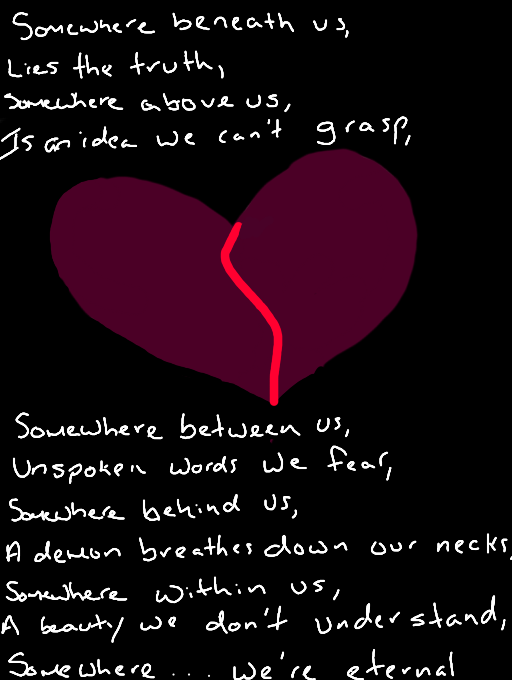 Somewhere beneath us,
Lies the truth,
Somewhere above us,
Is an idea we can't grasp,
Somewhere between us,
Unspoken words we fear,
Somewhere behind us,
A demon breathes down our necks,
Somewhere within us,
A beauty we don't understand,
Somewhere... we're eternal